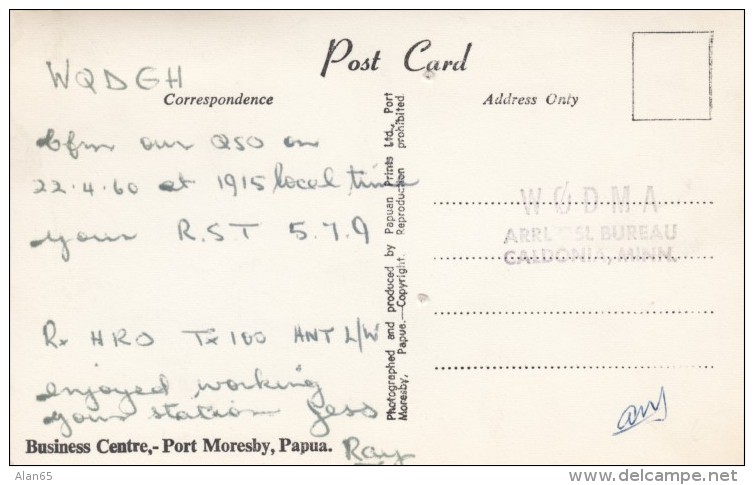 Post Card
WQDGH
Correspondence
Address Only
Cfm our QSO on
22.4.60 at 1915 local time
your R.S.T 5.7.9
Rx HRO Tx 100 ANT L/W
enjoyed working
your station Jess
Ray
Business Centre,- Port Moresby, Papua.
Photographed and produced by Papuan Prints Ltd., Port
Moresby, Papua.—Copyright. Reproduction prohibited.
WØDMA
ARRL QSL BUREAU
CALDONIA, MINN.
Alan65
delcampe.net